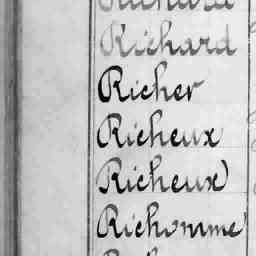 Richard
Richard
Richer
Richeux
Richeux
Richomme